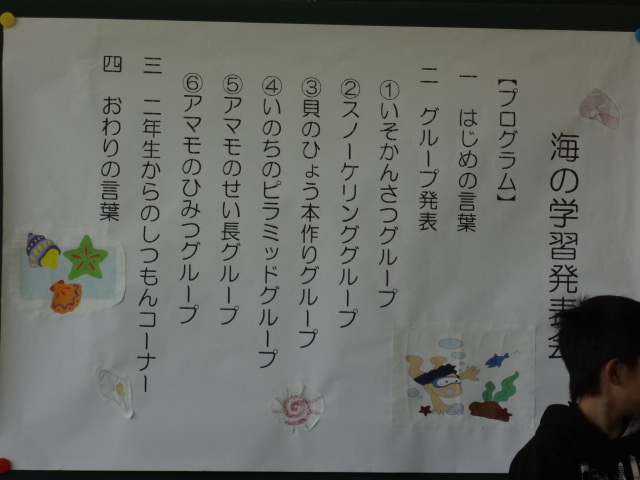 海の学習発表会
【プログラム】
一 はじめの言葉
二 グループ発表
①いそかんさつグループ
②スノーケリンググループ
③貝のひょう本作りグループ
④いのちのピラミッドグループ
⑤アマモのせい長グループ
⑥アマモのひみつグループ
三 二年生からのしつもんコーナー
四 おわりの言葉